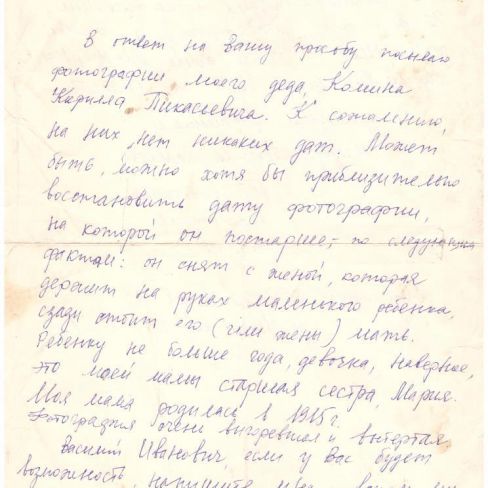 В ответ на Вашу просьбу посылаю
фотографии моего деда, Комина
Кирилла Пикасьевича. К сожалению,
на них нет никаких дат. Может
быть, можно хотя бы приблизительно
восстановить дату фотографии,
на которой он постарше, по следующим
фактам: он снят с женой, которая
держит на руках маленького ребенка,
сзади стоит его (или жены) мать.
Ребенку не больше года, девочка, наверное,
это моей мамы старшая сестра, Мария.
Моя мама родилась в 1915 г.
Фотография очень выгоревшая и вытертая
Василий Иванович если у Вас будет
возможность, напишите мне